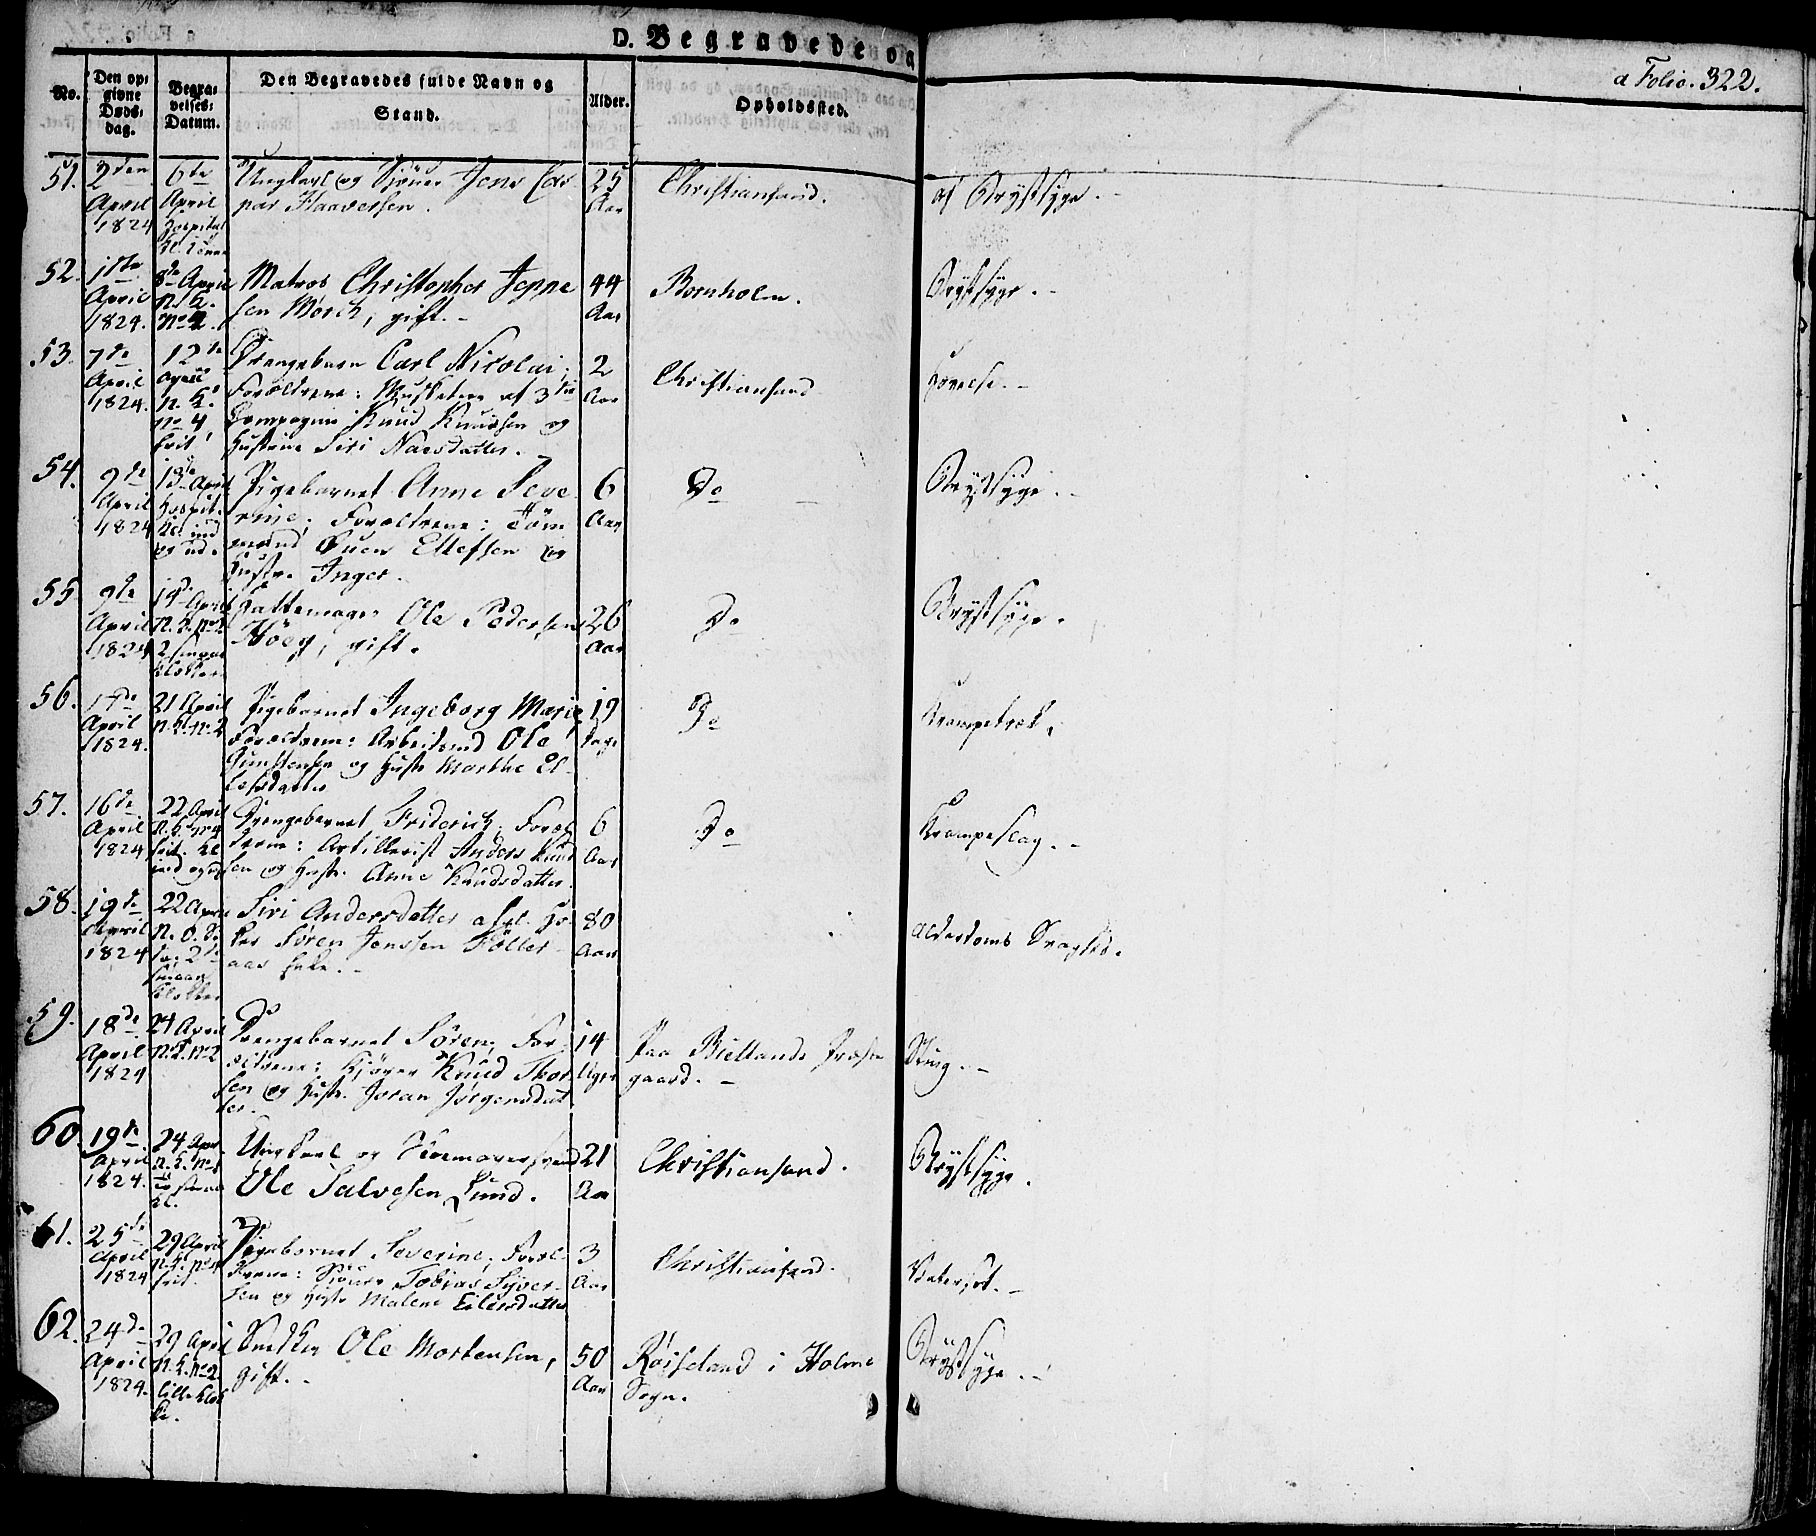 D. Begravede og
a Folio. 322.
No.
Den opgivne Dødsdag.
Begravelses-Datum.
Den Begravedes fulde Navn og Stand.
Alder.
Opholdssted.
51. 2den April 1824
6te April Hospital
Ungkarl og Sjöme Jens Cas-
par Haaversen.
25 Aar
Christiansand.
af Brystsyge.
52. 1ste April 1824.
8de April
Matros Christopher Jeppe
sen Mörch, gift. -
44 Aar
Bornholm.
Brystsyge. -
53. 7de April 1824.
12te April n. K. No 4, frit
Drengebarn Carl Nicolai;
Forældrene: Musketeer af 3die
Compagnie Knud Knudsen og
Hustrue Siri Naesdatter. -
2 Aar
Christiansand
54. 9de April 1824
13de April Hospit. Kl. ind og ud.
Pigebarnet Anne Seve-
rine; Forældrene: Töm
mermand Suen Ellefsen og
Hustr. Inger.
6 Aar
Do
Brystsyge. -
55 9de April 1824
14de April n. K. No 2 2 smaae Klokker
Hattemager Ole Pedersen
Höeg, gift.
26 Aar
Do
Brystsyge.
56. 17de April 1824.
21 April n. K. No 2
Pigebarnet Ingeborg Marie,
Forældrene: Arbeitsmd Ole
Gunstensen og Hustr Marthe El-
lefsdatter
19 Dage
Do
Krampetræk.
57. 16de April 1824
22 April n. K. No 4 frit. Kl ind og ud
Drengebarnet Friderich, Foræl
drene: Artillerist Anders Knud
sen og Hustr. Anne Knudsdatter.
6 Aar
Do
Krampeslag. -
58. 19de April 1824
22 April smaae Klokker
Siri Andersdatter afgl.
Søren Jenssen Föller-
aas Enke. -
80 Aar
Alderdoms Svaghed.
59. 18de April 1824
24 April n. K. No 2
Drengebarnet Sören, For-
ældrene: Kjörer Knud Thor
sen og Hustr. Joran Jörgensdat
ter.
14 Uger
Paa Biellands Præste
gaard. -
60. 19de April 1824.
24 April n. K. No 1 smaae Kl.
Ungkarl og Skomagersvend
Ole Salvesen Lund.
21 Aar
Christiansand.
Brystsyge.
61. 25de April 1824
29 April n. K. No 4 frit.
Pigebarnet Severine, Foræl-
drene: Sjöme Tobias Syver-
sen og Hustr Malene Eilersdatter
3 Aar
Christiansand.
62. 24de April 1824.
29 April n. K. No 2 lille Klokke.
Snedker Ole Mortensen,
gift. -
50 Aar
Röiseland i Holme
Sogn.
Brystsyge. -